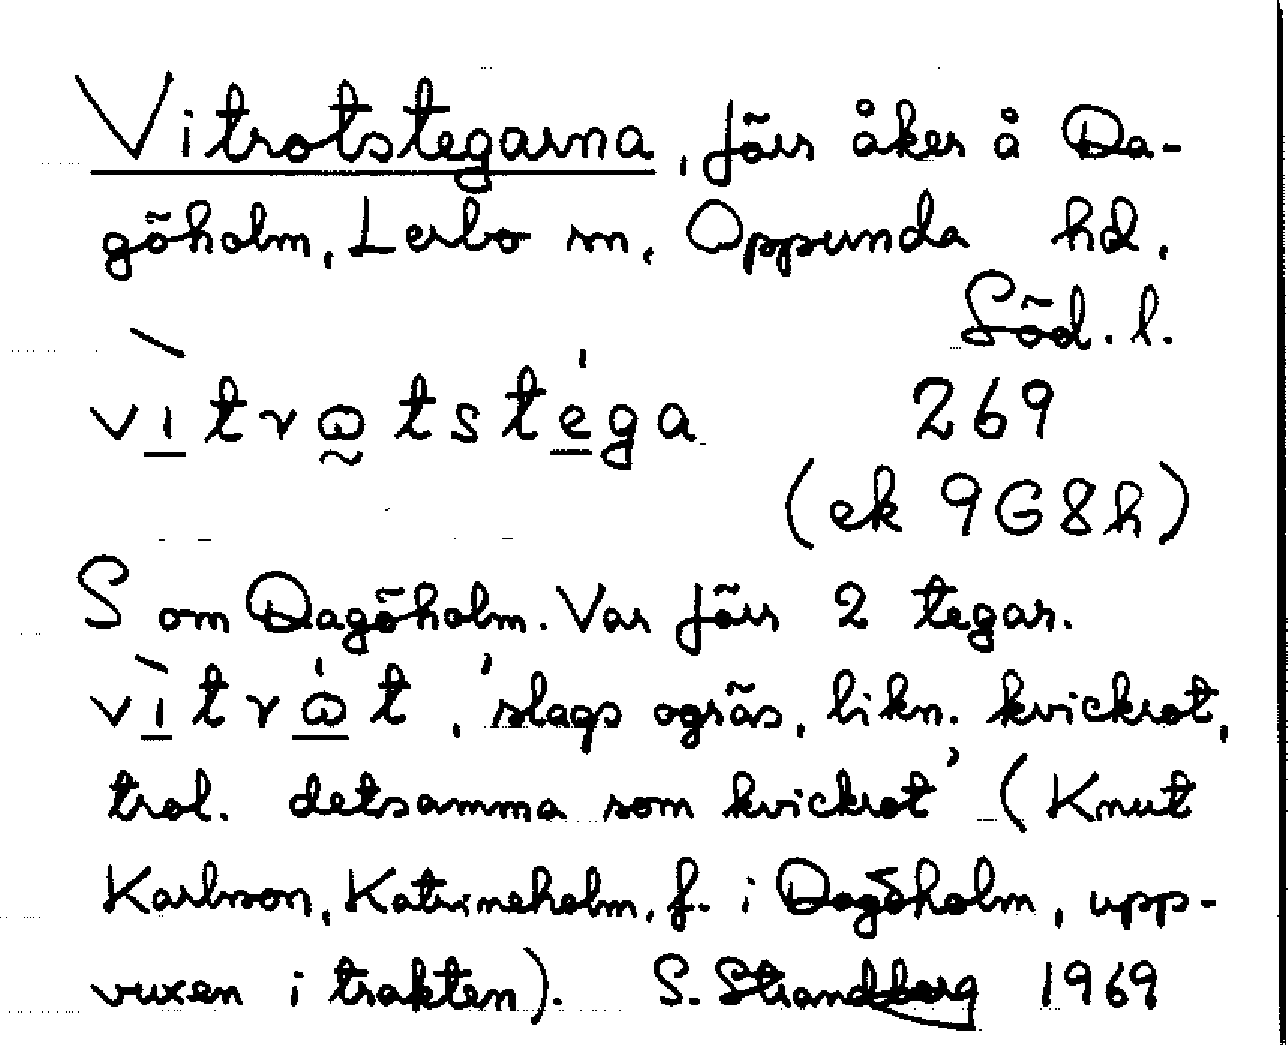 Vitrotstegarna, förs åker å Da-
göholm, Lerbo sn, Oppunda hd,
Söd. l.
vìtrω̰tstéga 269
(ek 9G8h)
S om Dagöholm. Var förs 2 tegar.
vìtrώt, 'slags ogräs, likn. kvickrot,
trol. detsamma som kvickrot' (Knut
Karlsson, Katrineholm, f. i Dagöholm, upp-
vuxen i trakten). S. Strandberg 1969